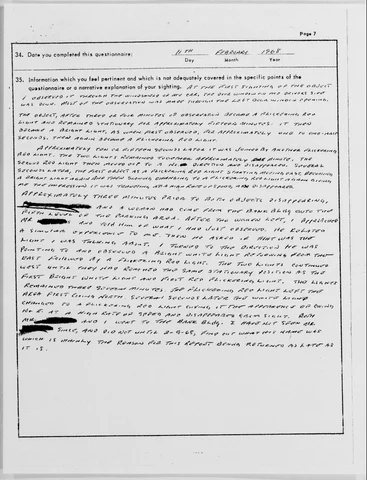 Page 7
34. Date you completed this questionnaire: 11TH FEBRUARY 1968
Day Month Year
35. Information which you feel pertinent and which is not adequately covered in the specific points of the
questionnaire or a narrative explanation of your sighting. AT THE FIRST SIGHTING OF THE OBJECT
I OBSERVED IT THROUGH THE WINDSHIELD OF MY CAR, THE DOOR WINDOW ON THE DRIVERS SIDE
WAS DOWN. MOST OF THE OBSERVATION WAS MADE THROUGH THE LEFT DOOR WINDOW OPENING.
THE OBJECT, AFTER THREE OR FOUR MINUTES OF OBSERVATION BECAME A FLICKERING RED
LIGHT AND REMAINED STATIONARY FOR APPROXIMATELY FIFTEEN MINUTES. IT THEN
BECAME A BRIGHT LIGHT, AS WHEN FIRST OBSERVED, FOR APPROXIMATELY
SECONDS, THEN AGAIN BECAME A FLICKERING RED LIGHT.
APPROXIMATELY TEN OR FIFTEEN SECONDS LATER IT WAS JOINED BY ANOTHER FLICKERING
RED LIGHT. THE TWO LIGHTS REMAINED TOGETHER APPROXIMATELY ONE MINUTE. THE
SECOND RED LIGHT THEN MOVED OUT TO A DIRECTION AND DISAPPEARED. SEVERAL
SECONDS LATER, THE FIRST OBJECT AS A FLICKERING RED LIGHT STARTED MOVING EAST, BECOMING
A BRIGHT LIGHT AGAIN FOR THREE SECONDS, CHANGING TO A FLICKERING RED LIGHT AGAIN GIVING
ME THE IMPRESSION IT WAS TRAVELING AT A HIGH RATE OF SPEED, AND DISAPPEARED.
APPROXIMATELY THREE MINUTES PRIOR TO BOTH OBJECTS DISAPPEARING,
AND A WOMAN HAD COME FROM THE BANK BLDG ONTO THE
FIFTH LEVEL OF THE PARKING AREA. AFTER THE WOMEN LEFT, I APPROACHED
MR. AND TOLD HIM OF WHAT I HAD JUST OBSERVED. HE RELATED
A SIMILAR EXPERIENCE TO ME. THEN HE ASKED IF THAT WAS THE
LIGHT I WAS TALKING ABOUT. I TURNED TO THE DIRECTION HE WAS
POINTING TO AND OBSERVED A BRIGHT WHITE LIGHT RETURNING FROM THE
EAST FOLLOWED BY A FLICKERING RED LIGHT. THE TWO LIGHTS CONTINUED
WEST UNTIL THEY HAD REACHED THE SAME STATIONARY POSITION AS THE
FIRST BRIGHT WHITE LIGHT AND FIRST RED FLICKERING LIGHT. THE LIGHTS
REMAINED THERE SEVERAL MINUTES. THE FLICKERING RED LIGHT LEFT THE
AREA FIRST GOING NORTH. SEVERAL SECONDS LATER THE WHITE LIGHT
CHANGED TO A FLICKERING RED LIGHT GIVING IT THE APPEARANCE OF GOING
N.E. AT A HIGH RATE OF SPEED AND DISAPPEARED FROM SIGHT. BOTH
MR. AND I WENT TO THE BANK BLDG. I HAVE NOT SEEN MR.
SINCE, AND DID NOT UNTIL 2-9-68, FIND OUT WHAT HIS NAME WAS
WHICH IS MAINLY THE REASON FOR THIS REPORT BEING RETURNED AS LATE AS
IT IS.